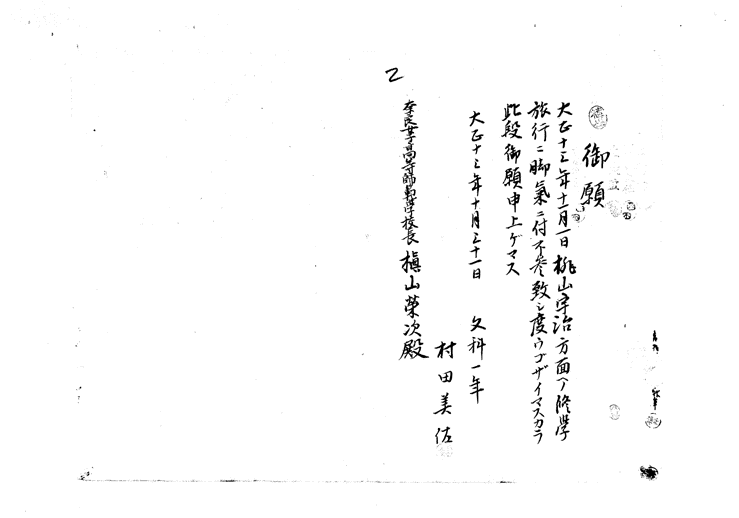 御願
大正十三年十一月一日桃山宇治方面ヘノ修學
旅行ニ脚氣ニ付不参致シ度ウゴザイマスカラ
此段御願申上ゲマス
大正十三年十月三十一日
文科一年
村田美佐
奈良女子高等師範学校長 槇山榮次殿
乙